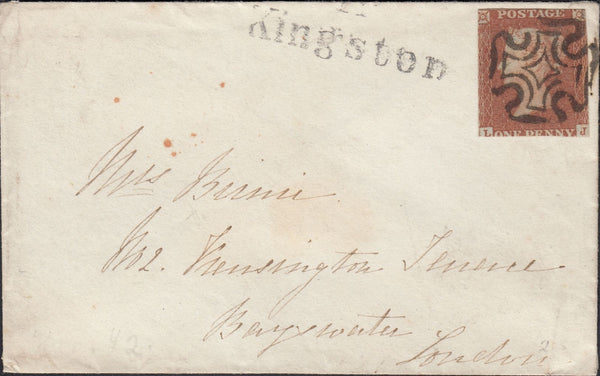 Kingston
POSTAGE
L ONE PENNY J
Mrs Birnie
No 2. Kensington Terrace
Bayswater
London